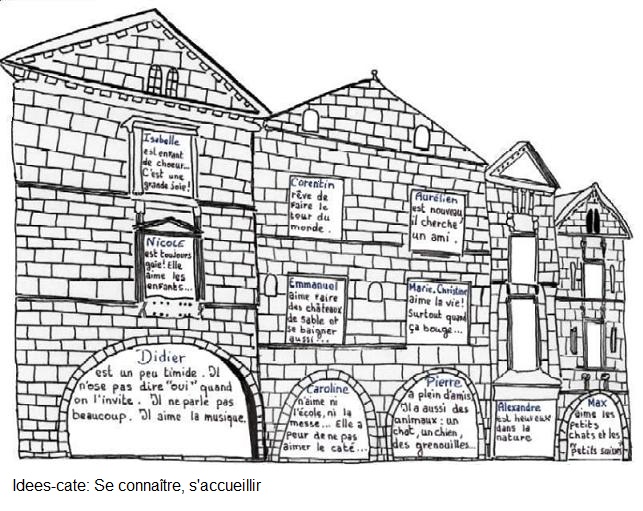 Isabelle
est enfant
de choeur...
C'est une
grande joie!
Corentin
rêve de
faire le
tour du
monde.
Aurélien
est nouveau,
il cherche
un ami.
Nicole
est toujours
gaie! Elle
aime les
enfants...
Emmanuel
aime faire
des châteaux
de sable et
se baigner
aussi...
Marie-Christine
aime la vie!
Surtout quand
ça bouge...
Didier
est un peu timide. Il
n'ose pas dire "oui" quand
on l'invite. Il ne parle pas
beaucoup. Il aime la musique.
Caroline
n'aime ni
l'école, ni la
messe... Elle a
peur de ne pas
aimer le caté...
Pierre
a plein d'amis
Il a aussi des
animaux: un
chat, un chien,
des grenouilles...
Alexandre
est heureux
dans la
nature
Max
aime les
petits
chats et les
petits
Idees-cate: Se connaître, s'accueillir